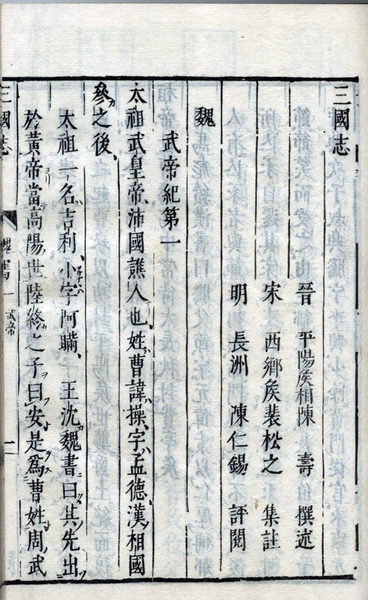 三國志
晉 平陽侯相陳 壽 撰述
宋 西鄉侯裴松之 集註
明 長洲 陳仁錫 評閱
魏
武帝紀第一
太祖武皇帝沛國譙人也姓曹諱操字孟德漢相國
參之後
太祖一名吉利小字阿瞞 王沈魏書曰其先出
於黃帝當高陽世陸終之子曰安是爲曹姓周武
三國志
武帝